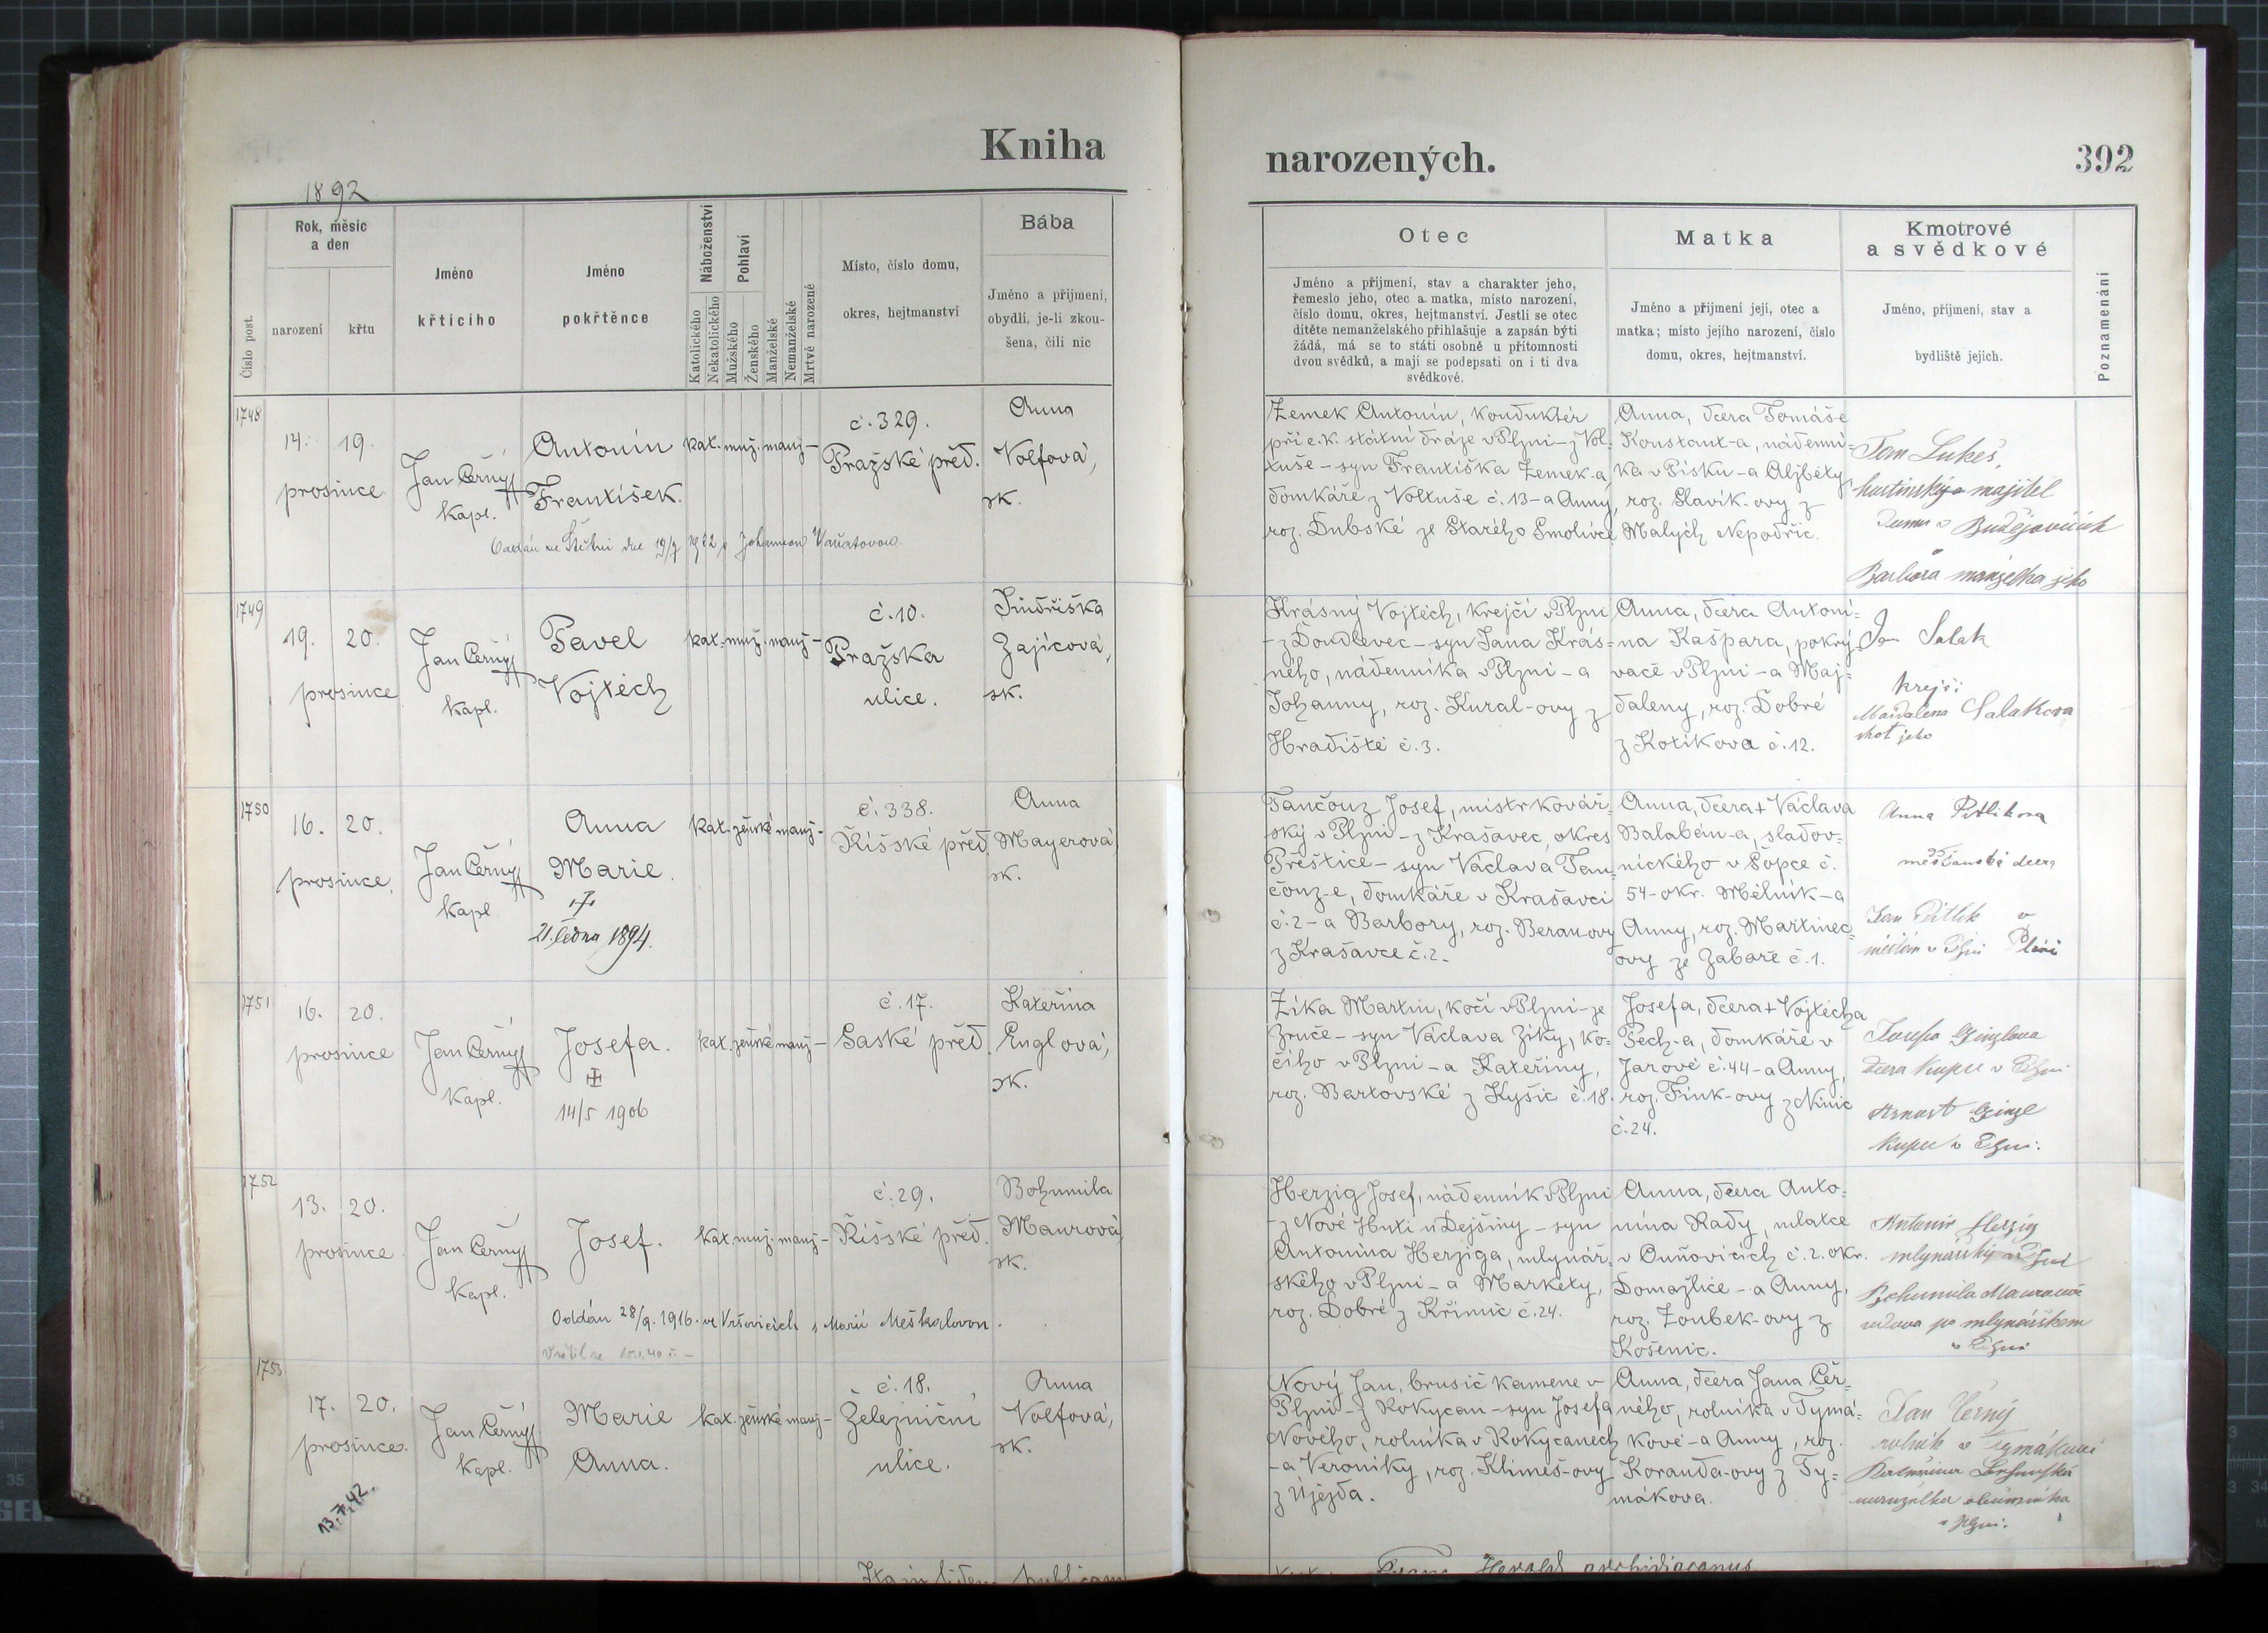 Kniha
1892
Číslo post.
Rok, měsíc
a den
narození
křtu
Jméno
křtícího
Jméno
pokřtěnce
Náboženství
Katolického
Nekatolického
Pohlaví
Mužského
Ženského
Manželské
Nemanželské
Mrtvě narozené
Místo, číslo domu,
okres, hejtmanství
Bába
Jméno a příjmení,
obydlí, je-li zkou-
šena, čili nic
1748
14. 19.
prosince
Jan Černý
kapl.
Antonín
František.
kat. muž. manž –
č. 329.
Pražské před.
Anna
Volfová,
zk.
Oddán ve Štěkni dne 19/7 1922 s Johannou Vaňatovou
1749
19. 20.
prosince
Jan Černý
kapl.
Pavel
Vojtěch
kat. muž. manž –
č. 10.
Pražská
ulice.
Jindřiška
Zajícová,
zk.
1750
16. 20.
prosince.
Jan Černý
kapl.
Anna
Marie.
21. ledna 1894.
kat. ženské manž –
č. 338.
Říšské před.
Anna
Mayerová,
zk.
1751
16. 20.
prosince
Jan Černý
kapl.
Josefa.
14/5 1906
kat. ženské manž –
č. 17.
Saské před.
Kateřina
Englová,
zk.
1752
13. 20.
prosince.
Jan Černý
kapl.
Josef.
kat. muž. manž –
č. 29.
Říšské před.
Bohumila
Maurová
zk.
Oddán 28/9. 1916. ve Vršovicích s Marií Meškalovou.
1753
17. 20.
prosince.
Jan Černý
kapl.
Marie
Anna.
kat. ženské manž –
č. 18.
Železniční
ulice.
Anna
Volfová,
zk.
13.7.42.
narozených.
392
Otec
Jméno a příjmení, stav a charakter jeho,
řemeslo jeho, otec a matka, místo narození,
číslo domu, okres, hejtmanství. Jestli se otec
dítěte nemanželského přihlašuje a zapsán býti
žádá, má se to státi osobně u přítomnosti
dvou svědků, a mají se podepsati on i ti dva
svědkové.
Matka
Jméno a příjmení její, otec a
matka; místo jejího narození, číslo
domu, okres, hejtmanství.
Kmotrové
a svědkové
Jméno, příjmení, stav a
bydliště jejich.
Poznamenání
Zemek Antonín, konduktér
při c. k. státní dráze v Plzni – z Vol-
tuše – syn Františka Zemek-a,
domkáře z Voltuše č. 13 – a Anny,
roz. Dubské ze Starého Smolivce
Anna, dcera Tomáše
Konstant-a, nádenní-
ka v Písku – a Alžběty,
roz. Slavík-ovy z
Malých Nepodřic.
Jan Lukeš,
hostinský a majitel
domu v Budějovicích
Barbora manželka jeho
Krásný Vojtěch, krejčí v Plzni
– z Doudlevec – syn Jana Krás-
ného, nádenníka v Plzni – a
Johanny, roz. Kural-ovy z
Hradiště č. 3.
Anna, dcera Antoní-
na Kašpara, pokrý-
vače v Plzni – a Maj-
daleny, roz. Dobré
z Kotikova č. 12.
Jan Salak
krejčí
Mandalena Salakova
choť jeho
Tančouz Josef, mistr kovář-
ský v Plzni – z Krašavec, okres
Přeštice – syn Václava Tan-
čouz-e, domkáře v Krašavci
č. 2 – a Barbory, roz. Beran-ovy
z Krašavce č. 2.
Anna, dcera + Václava
Balabán-a, sladov-
nického v Sopce č.
54 – okr. Mělník – a
Anny, roz. Martinec-
ovy ze Zaboře č. 1.
Anna Pitlikova
měšťanská dcera
Jan Pitlik v
měšťan v Plzni Plzni
Zíka Martin, kočí v Plzni – ze
Zruče – syn Václava Zíky, ko-
čího v Plzni – a Kateřiny,
roz. Bartovské z Kyšic č. 18.
Josefa, dcera + Vojtěcha
Pech-a, domkáře v
Jarově č. 44 – a Anny,
roz. Fink-ovy z Ninic
č. 24.
Josefa Ginzlova
dcera kupce v Plzni
Arnost Ginzl
kupec v Plzni.
Herzig Josef, nádenník v Plzni
– z Nové Huti u Dejšiny – syn
Antonína Herziga, mlynář-
ského v Plzni – a Markéty,
roz. Dobré z Křimic č. 24.
Anna, dcera Anto-
nína Rady, mlatce
v Ouňovicích č. 2. okr.
Domažlice – a Anny,
roz. Zoubek-ovy z
Košenic.
Antonín Herzig
mlynářský v Plzni
Bohumila Maurová
vdova po mlynářskem
v Plzni
Nový Jan, brusič kamene v
Plzni – z Rokycan – syn Josefa
Nového, rolníka v Rokycanech
– a Veroniky, roz. Klimeš-ovy
z Újezda.
Anna, dcera Jana Čer-
ného, rolníka v Tymá-
kově – a Anny, roz.
Koranda-ovy z Ty-
mákova.
Jan Černý
rolník v Tymákově
manželka
v Plzni.
Herold archidiaconus.